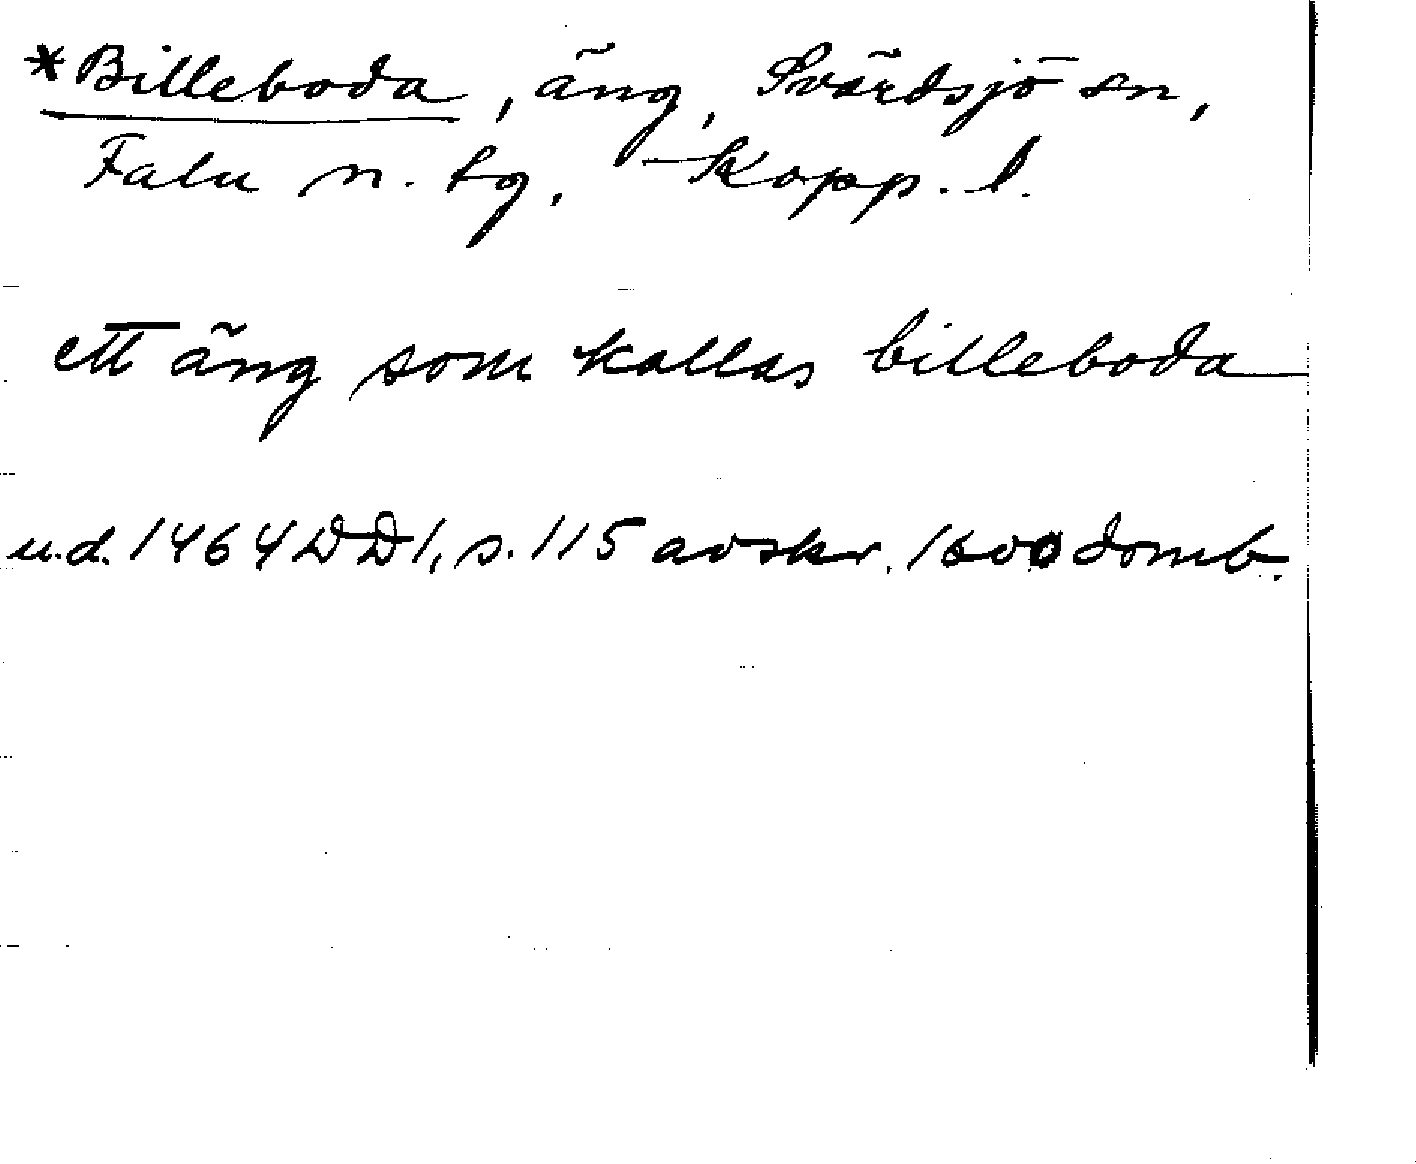 *Billeboda, äng, Svärdsjö sn,
Falu n. tg, Kopp. l.
ett äng som kallas billeboda
u.d. 1464 DD1, s. 115 avskr. 1600 domb.